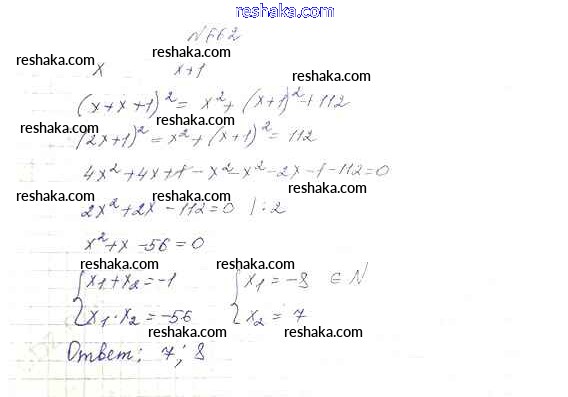 reshaka.com
N 662
reshaka.com
reshaka.com
x x+1
reshaka.com
(x+x+1)² = x² + (x+1)² + 112
reshaka.com
reshaka.com
(2x+1)² = x² + (x+1)² = 112
4x² + 4x + 1 - x² - x² - 2x - 1 - 112 = 0
reshaka.com reshaka.com reshaka.com
2x² + 2x - 112 = 0 | : 2
x² + x - 56 = 0
reshaka.com reshaka.com
x₁ + x₂ = -1 x₁ = -8 ∈ N
x₁ · x₂ = -56 x₂ = 7
reshaka.com reshaka.com
Ответ: 7; 8